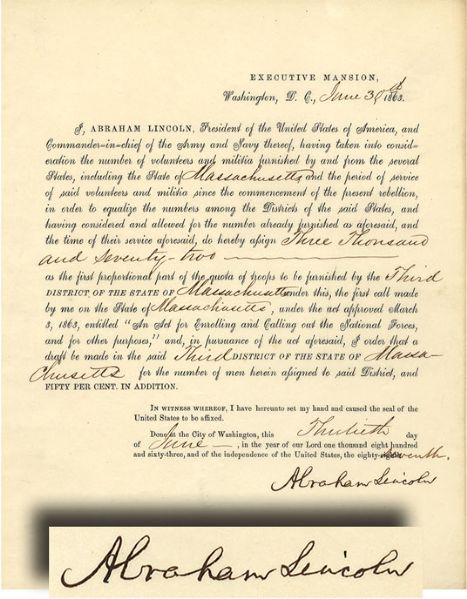 EXECUTIVE MANSION,
Washington, D. C., June 30th 1863.
I, ABRAHAM LINCOLN, President of the United States of America, and
Commander-in-chief of the Army and Navy thereof, having taken into consid-
eration the number of volunteers and militia furnished by and from the several
States, including the State of Massachusetts and the period of service
of said volunteers and militia since the commencement of the present rebellion,
in order to equalize the numbers among the Districts of the said States, and
having considered and allowed for the number already furnished as aforesaid, and
the time of their service aforesaid, do hereby assign Three Thousand
and Seventy-two
as the first proportional part of the quota of troops to be furnished by the Third
DISTRICT OF THE STATE OF Massachusetts under this, the first call made
by me on the State of Massachusetts, under the act approved March
3, 1863, entitled "An Act for Enrolling and Calling out the National Forces,
and for other purposes," and, in pursuance of the act aforesaid, I order that a
draft be made in the said Third DISTRICT OF THE STATE OF Massa-
chusetts for the number of men herein assigned to said District, and
FIFTY PER CENT. IN ADDITION.
IN WITNESS WHEREOF, I have hereunto set my hand and caused the seal of the
United States to be affixed.
Done at the City of Washington, this Thirtieth day
of June, in the year of our Lord one thousand eight hundred
and sixty-three, and of the independence of the United States, the eighty-seventh.
Abraham Lincoln
Abraham Lincoln